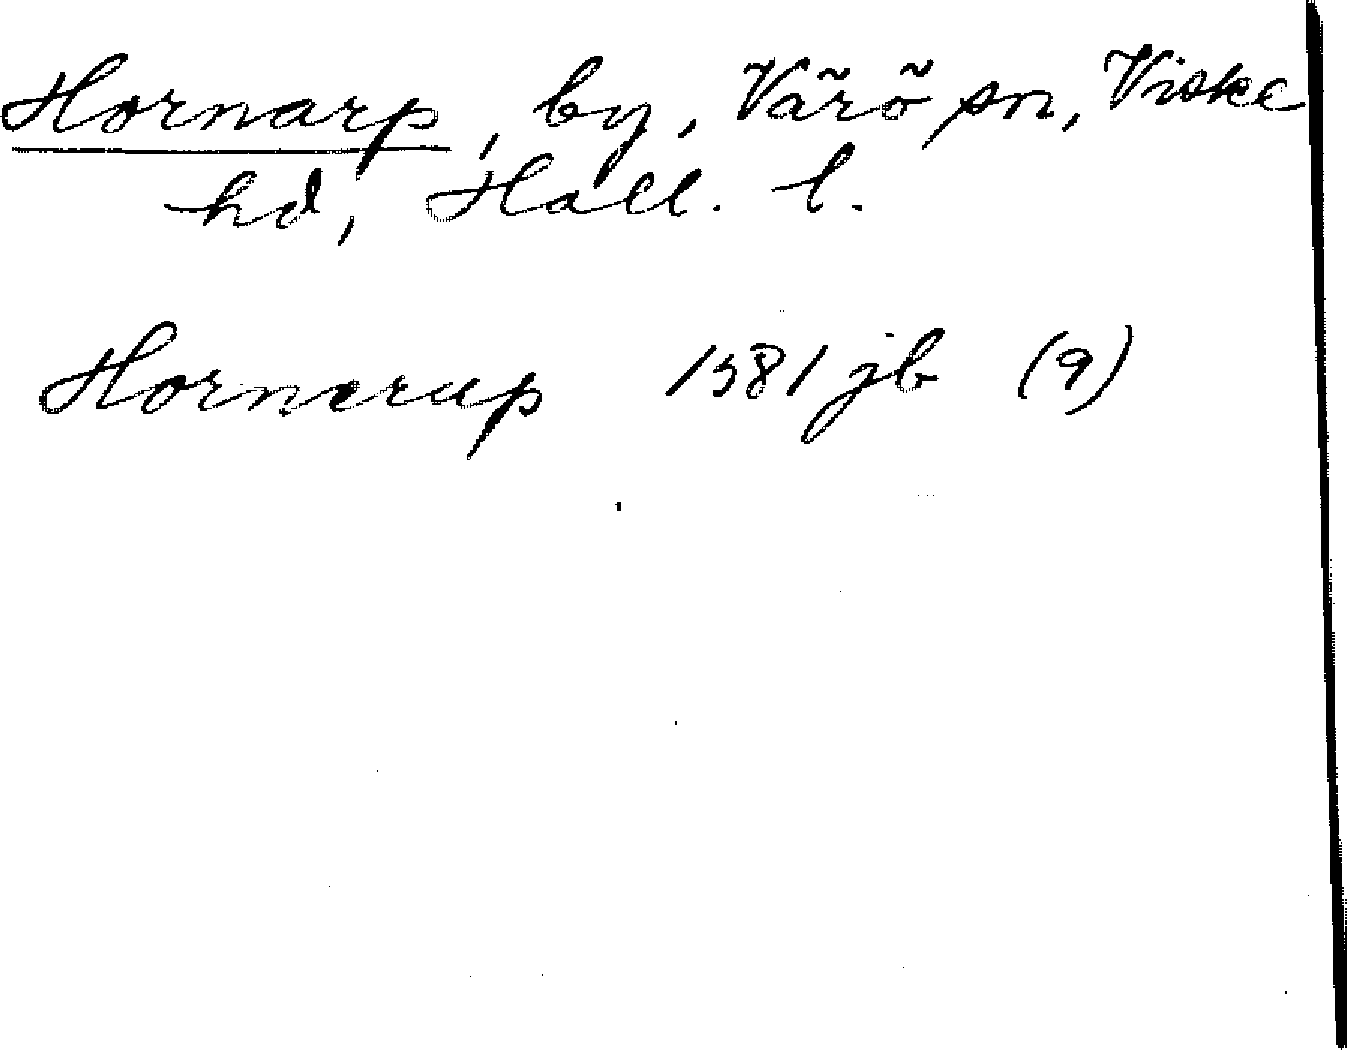 Hornarp, by, Värö sn, Viske
hd, Hall. l.
Hornerup 1581 jb (9)